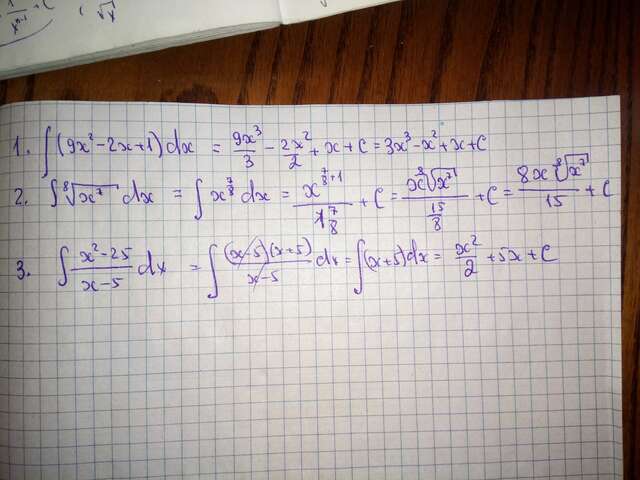 1/xⁿ⁻¹ + C ( √x
1. ∫(9x² - 2x + 1) dx = 9x³/3 - 2x²/2 + x + C = 3x³ - x² + x + C
2. ∫ ⁸√x⁷ dx = ∫ x^(7/8) dx = x^(7/8 + 1)/1 7/8 + C = x ⁸√x⁷/(15/8) + C = 8x ⁸√x⁷/15 + C
3. ∫ (x² - 25)/(x - 5) dx = ∫ (x - 5)(x + 5)/(x - 5) dx = ∫(x + 5)dx = x²/2 + 5x + C